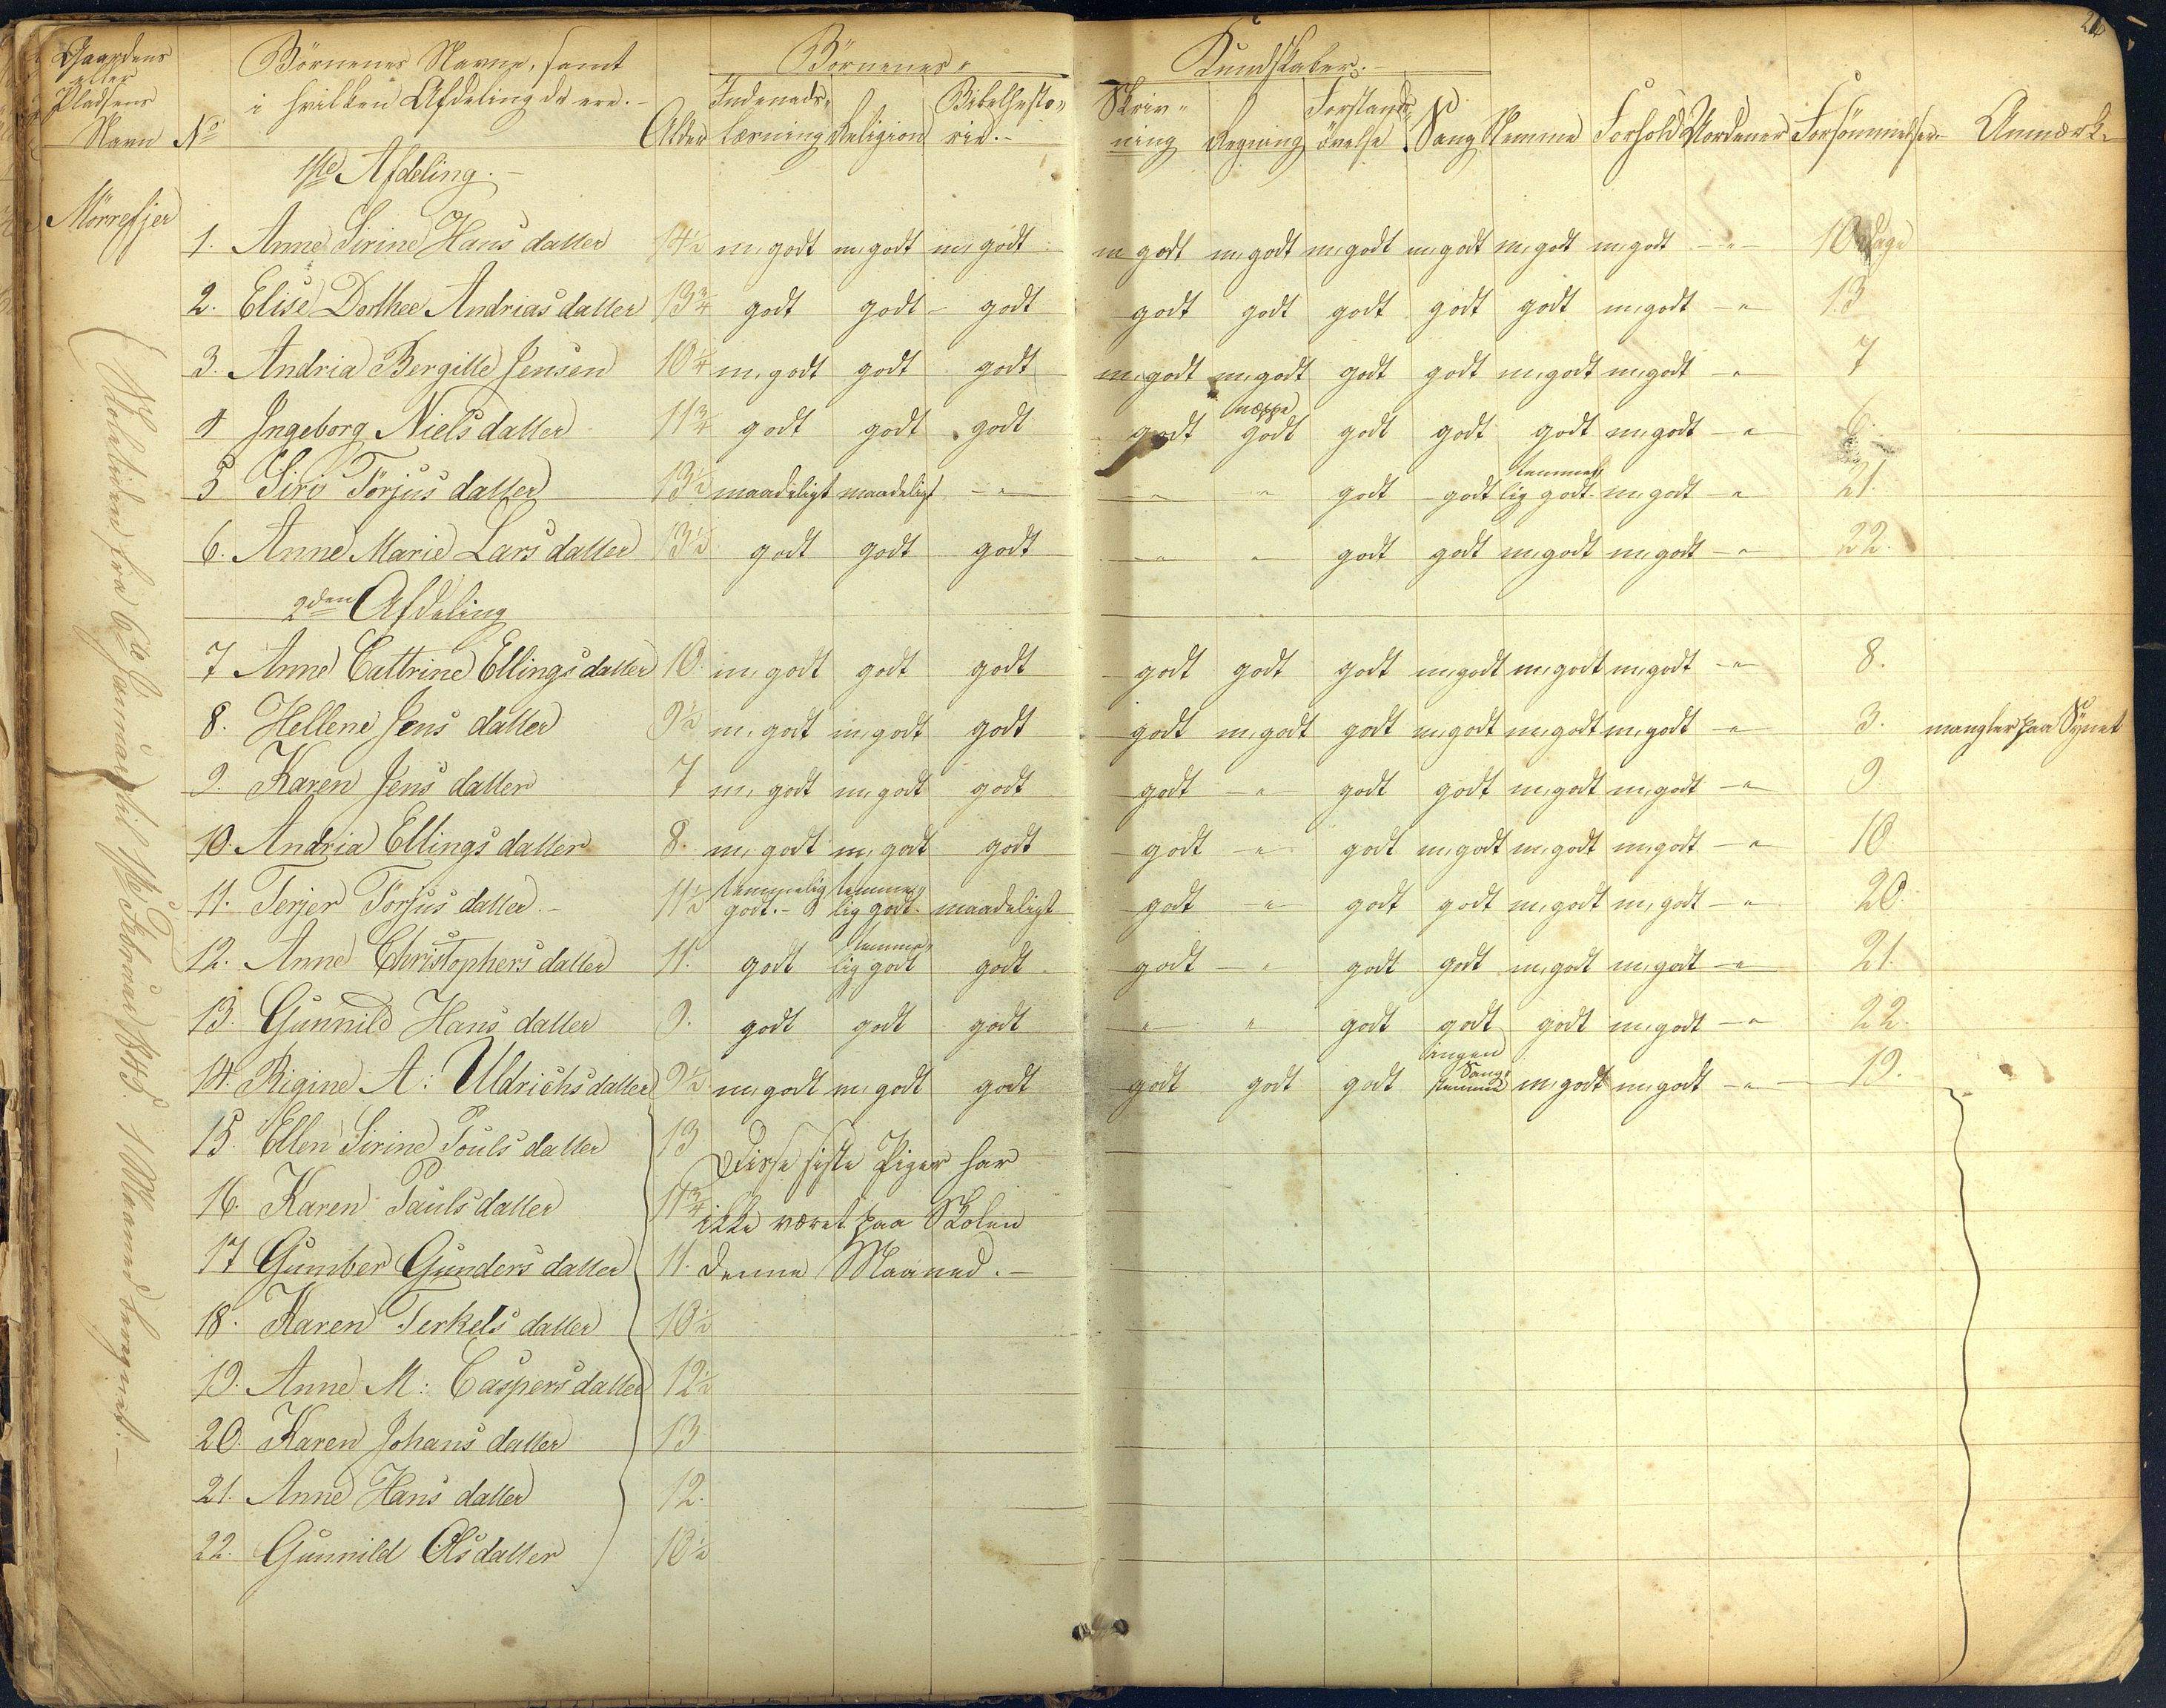 Gaardens eller Pladsens Navn No Börnenes Navne, samt i hvilken Afdeling de ere.- Alder Börnenes Indenads- læsning Religion Bibelhisto- rie.- Kundskaber.- Skriv- ning Regning Forstands- övelse Sang Nemme Forhold Uordener Forsömmelser. Anmærk.
26
1ste Afdeling.-
Mörrefjer
1. Anne Sirine Hans datter 14½ m. godt m. godt m. godt m godt m. godt m. godt m. godt m. godt m. godt - " - 10 dage
2. Elise Dorthee Andrias datter 13¾ godt godt - godt godt godt godt godt godt m. godt - " 13
3. Andria Bergitte Jensen 10¼ m. godt godt godt m. godt m. godt godt godt m. godt m. godt - " 7
4 Ingeborg Niels datter 11¾ godt godt godt godt næppe godt godt godt godt m. godt - " 6.
5 Siri Törjus datter 13½ maadeligt maadeligt - " - " " godt godt temme- lig godt m. godt - " 21.
6. Anne Marie Lars datter 13½ godt godt godt - " " godt godt m. godt m. godt - " 22.
2den Afdeling
7 Anne Cattrine Ellings datter 10. m. godt godt godt godt godt godt m. godt m. godt m. godt - " 8.
8. Hellene Jens datter 9½ m. godt m. godt godt godt m. godt godt m. godt m. godt m. godt - " 3. mangler paa Synet
9. Karen Jens datter 7 m. godt m. godt godt godt - " godt godt m. godt m. godt - " 9
10. Andria Ellings datter 8. m. godt m. godt godt godt - " godt m. godt m. godt m. godt - " 10
11. Terjer Törjus datter.- 11½ temmelig godt.- temme- lig godt. maadeligt godt - " godt godt m. godt m. godt - " 20.
12. Anne Christophers datter 11. godt temme- lig godt godt godt - " godt godt m. godt m. godt - " 21.
13. Gunnild Hans datter 9. godt godt godt " " godt godt godt m. godt - " 22.
14. Rigine A: Uldrichs datter 9½ m. godt m. godt godt godt godt godt ingen Sang- stemme m. godt m. godt - " - 19.
15. Ellen Sirine Pouls datter 13 Disse siste Piger har
16. Karen Pauls datter 11¾ ikke været paa Skolen
17 Gumber Gunders datter 11. denne Maaned.-
18. Karen Terkels datter 10½
19. Anne M: Caspers datter 12½
20. Karen Johans datter 13
21. Anne Hans datter 12.
22. Gunnild Ols datter 10½
(Skoletiden fra 6te Januar til 1ste Februar 1845. 1 Maaned beregnet.-